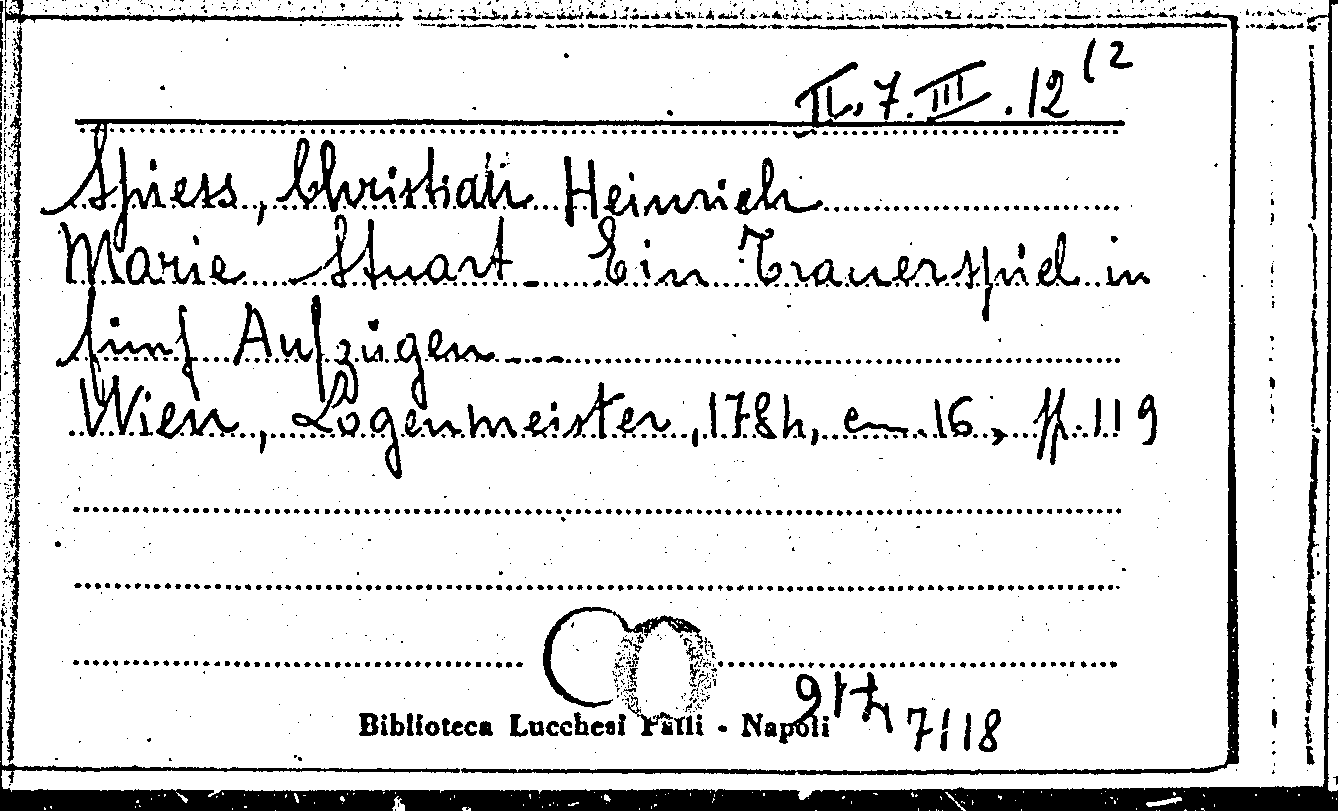 II.7.III.12 12
Spiess, Christian Heinrich
Marie Stuart - Ein Trauerspiel in
fünf Aufzügen
Wien, Logenmeister, 1784, cm. 16, pp. 119
Biblioteca Lucchesi Palli - Napoli
7118